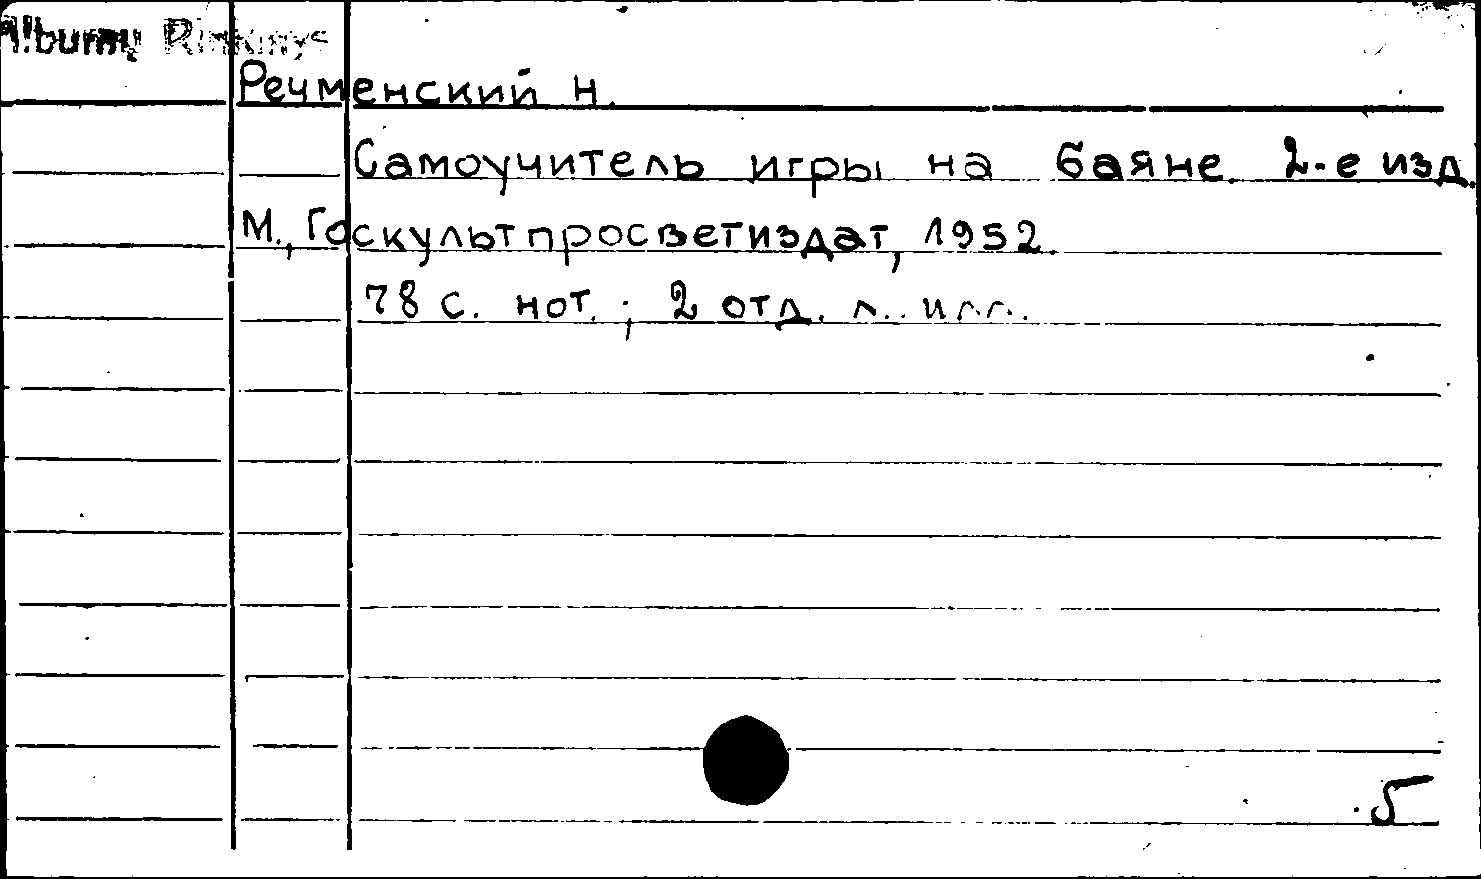 Albumų Rinkinys
Речменский Н.
Самоучитель игры на баяне. 2-е изд.
М., Госкультпросветиздат, 1952.
78 с. нот.; 2 отд. л. илл.
5